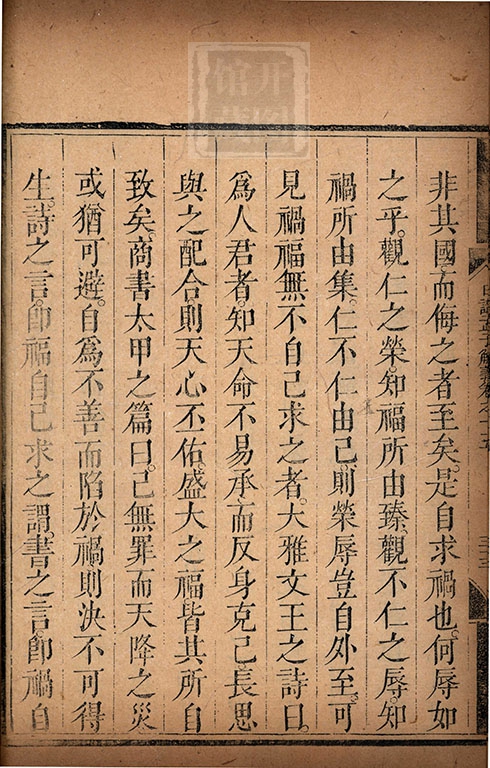 非其國而侮之者至矣。是自求禍也。何辱如
之乎。觀仁之榮。知福所由臻。觀不仁之辱。知
禍所由集。仁不仁由己。則榮辱豈自外至。可
見禍福無不自己求之者。大雅文王之詩曰。
爲人君者。知天命不易承。而反身克己。長思
與之配合。則天心丕佑。盛大之福。皆其所自
致矣。商書太甲之篇曰。己無罪而天降之災
或猶可避。自爲不善而陷於禍。則決不可得
生。詩之言。卽福自己求之謂。書之言。卽禍自